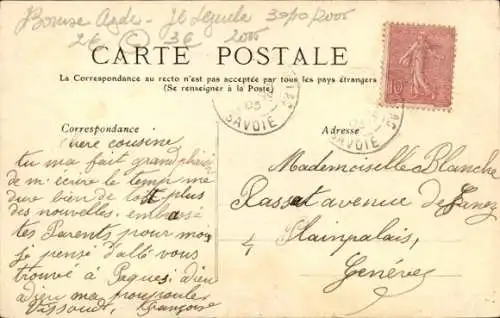 Bourse Agde - St Seguela 30/10/2005
2€ 3€ 2005
CARTE POSTALE
La Correspondance au recto n'est pas acceptée par tous les pays étrangers
(Se renseigner à la Poste)
Correspondance
Adresse
SAVOIE
SAVOIE
10
Chere cousine
tu ma fait grand plaisir
de m'écrire le temp me
dure bien de toit plus
des nouvelles embrasse
tes Parents pour moi
je pensé d'allé vous
trouvé à Paques adieu
adieu ma
Françoise
Mademoiselle Blanche
Passat avenue de
4 Plainpalais,
Genéve